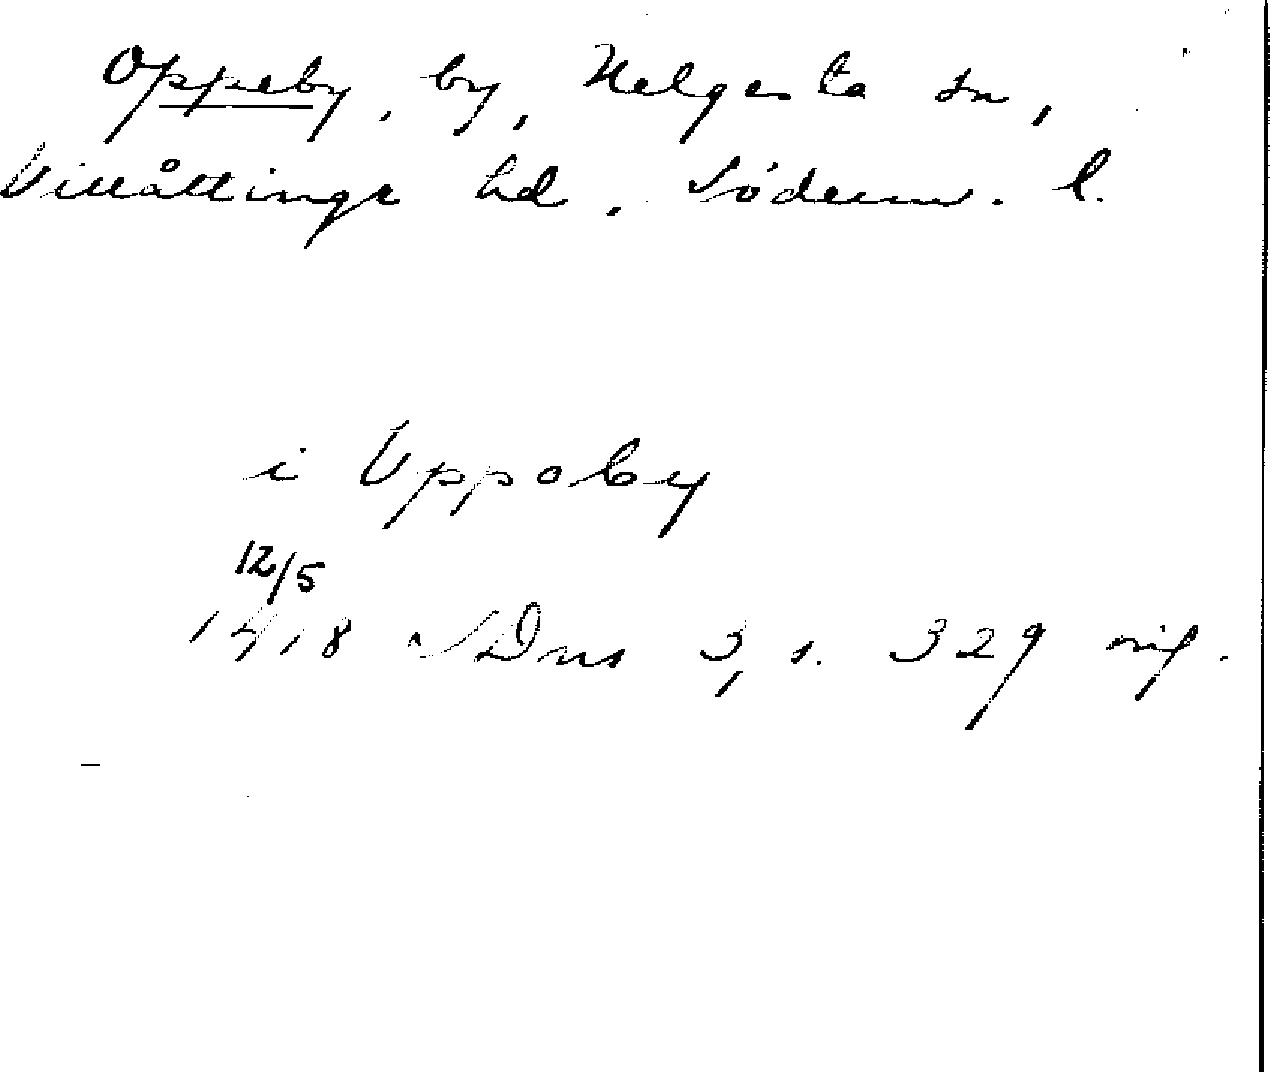 Oppeby, by, Helgesta sn,
Villåttinge hd. Söderm. l.
i Uppoby
12/5
1418 SDns 3, s. 329 orig.